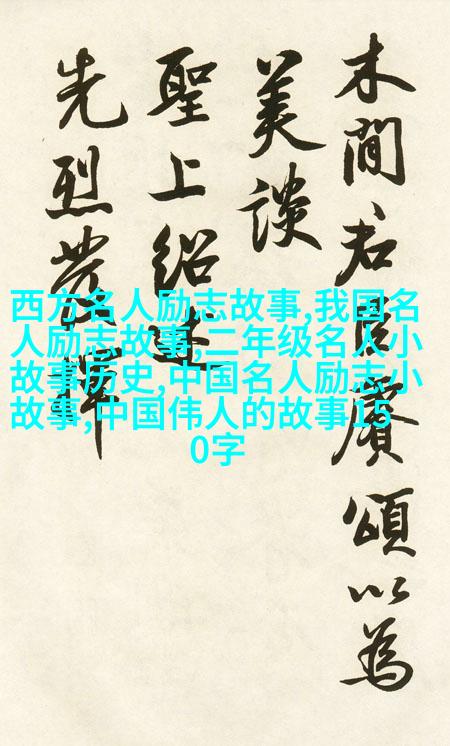 木間君臣賡頌以為
美談
聖上紹述
先烈發揮
西方名人励志故事,我国名
人励志故事,二年级名人小
故事历史,中国名人励志小
故事,中国伟人的故事15
0字